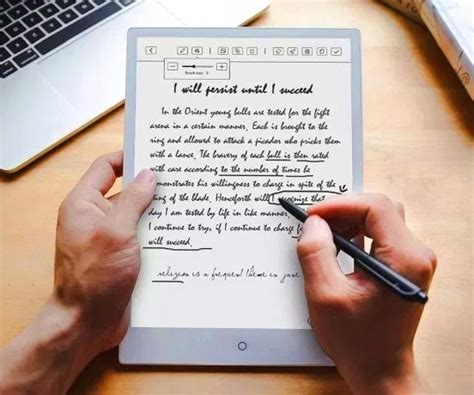 Brush size : 5
I will persist until I succeed
In the Orient young bulls are tested for the fight
arena in a certain manner. Each is brought to the
ring and allowed to attack a picador who pricks them
with a lance. The bravery of each bull is then rated
with care according to the number of times he
monstrates his willingness to charge in spite of the
ting of the blade. Henceforth will I recognize that
day I am tested by life in like manner.
I continue to try, if I continue to charge
will succeed.
religion is a frequent theme in